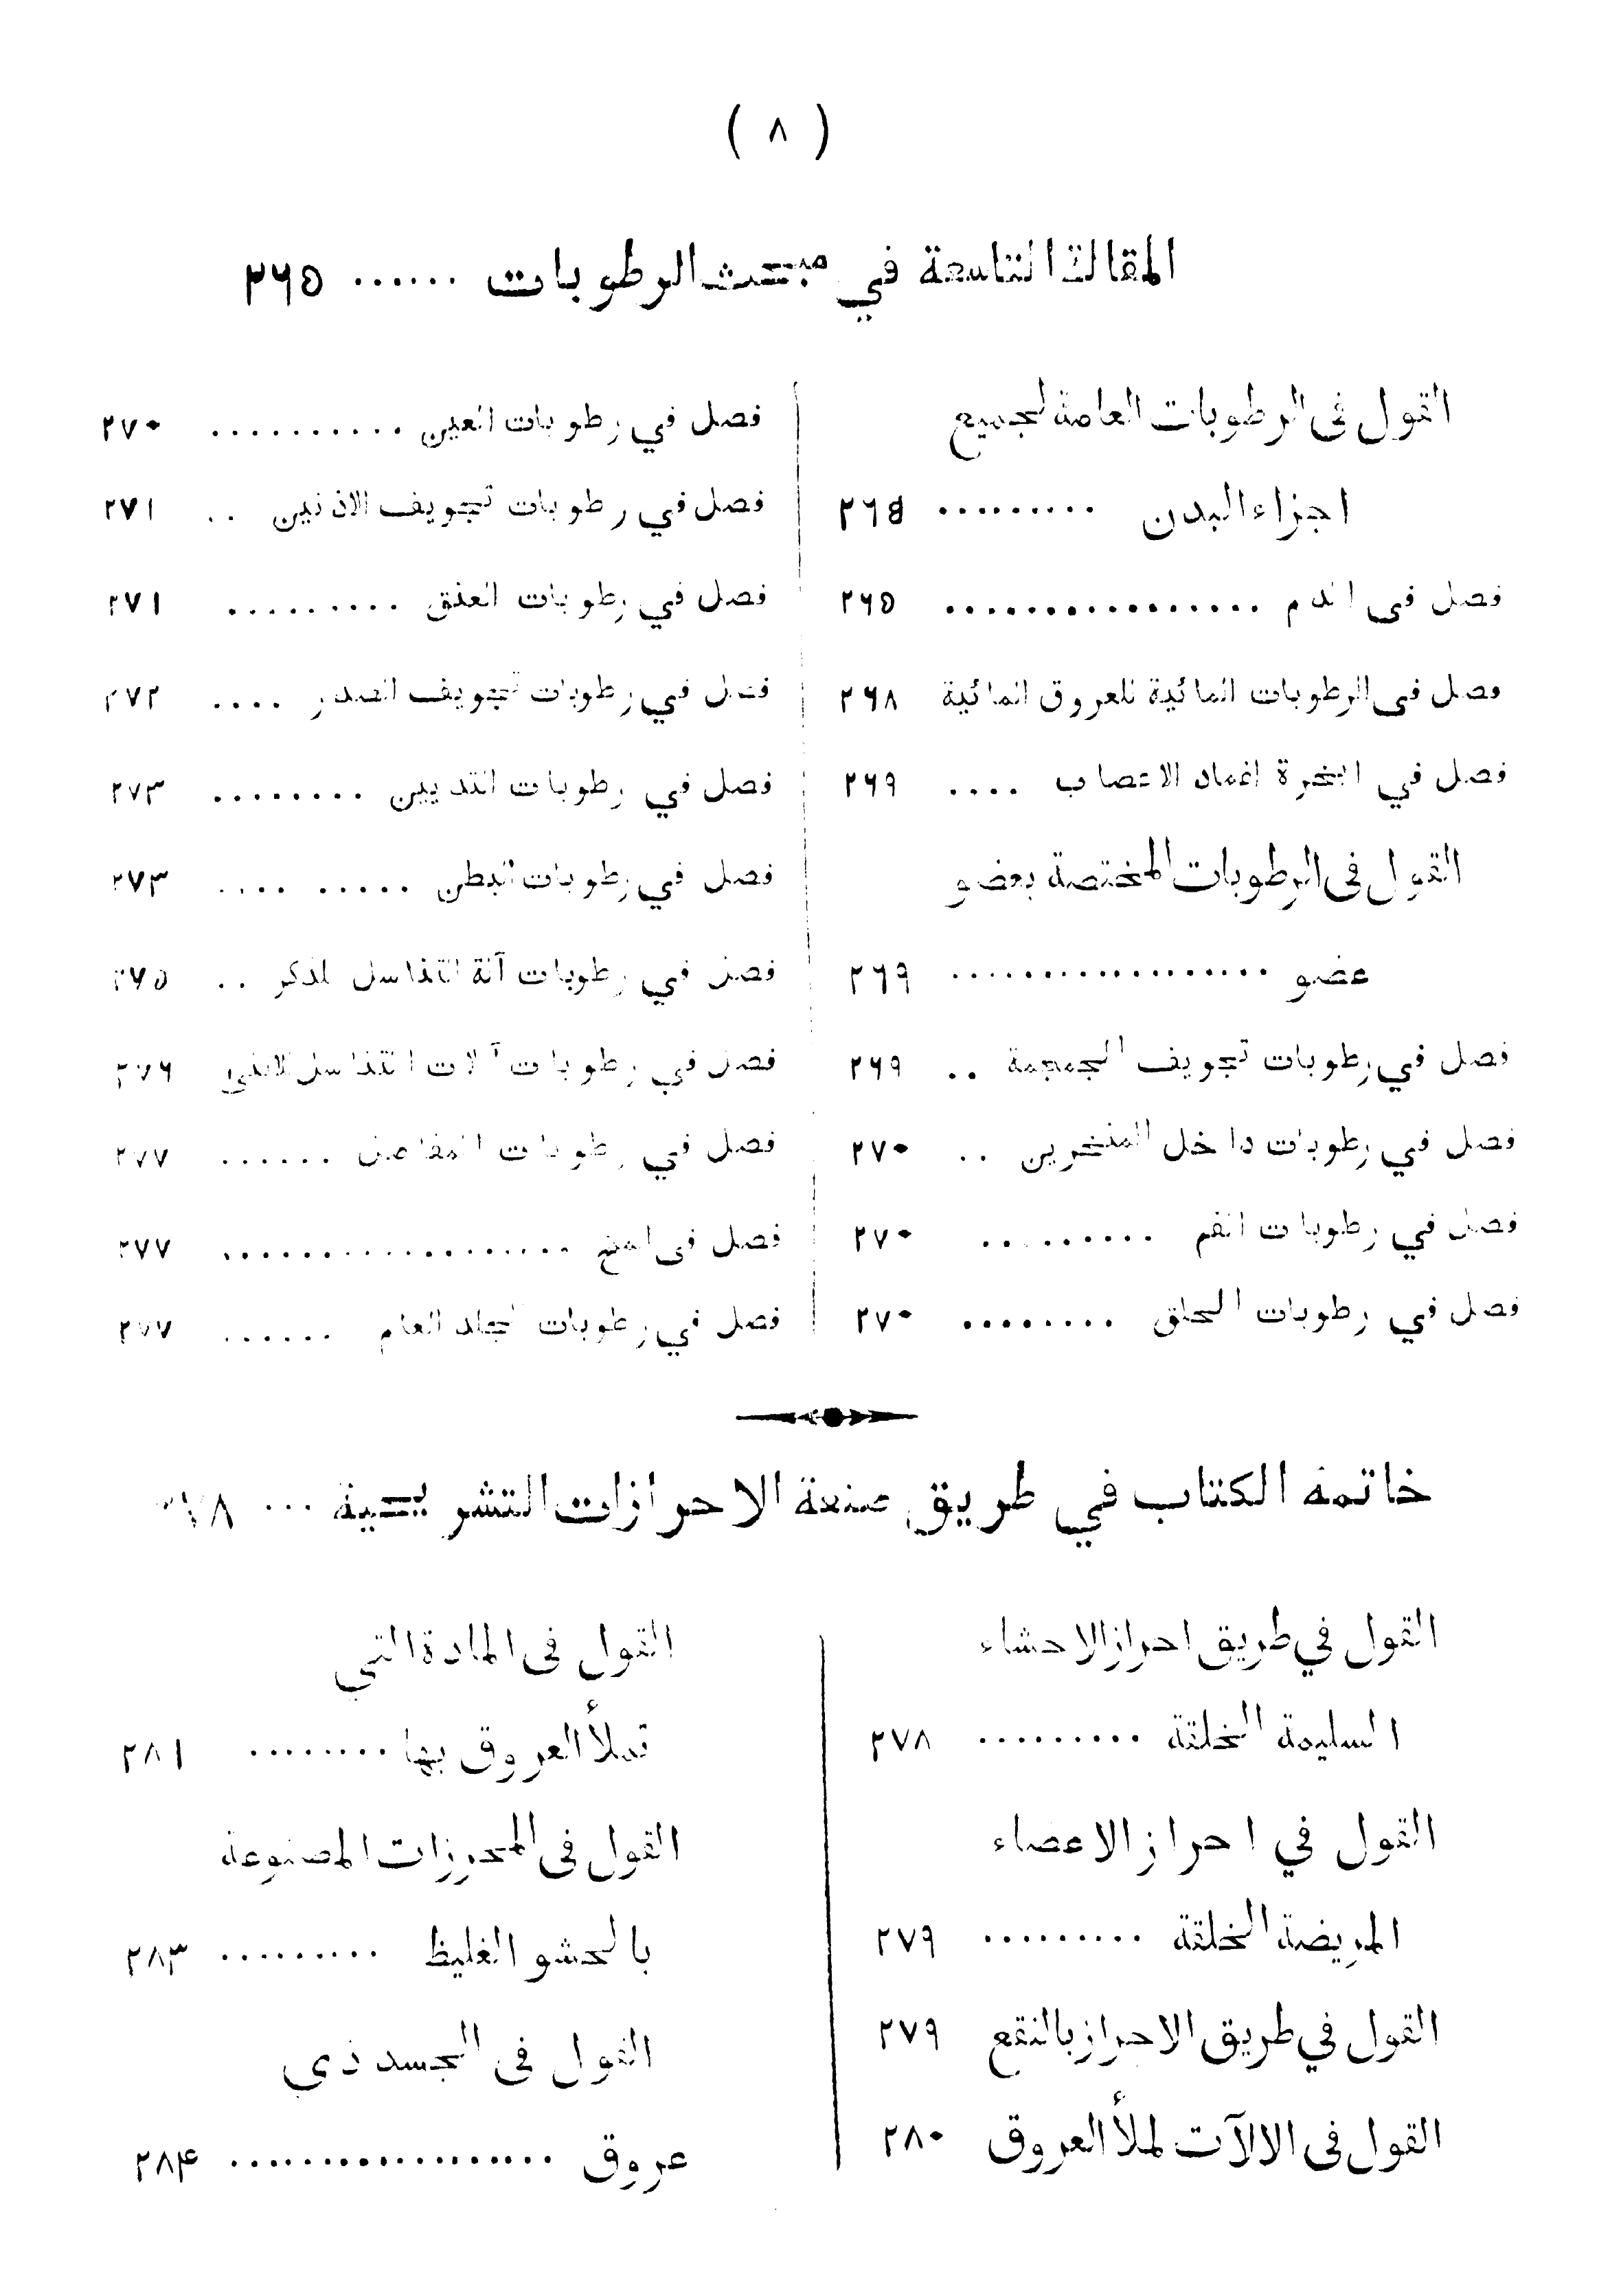 ( ٨ )
المقالة التاسعة في مبحث الرطوبات ...... ٢٦٥
القول في الرطوبات العامة لجميع
اجزاء البدن ......... ٢٦٥
فصل في الدم ................ ٢٦٥
فصل في الرطوبات المائية للعروق المائية ٢٦٨
فصل في ابخرة اغماد الاعصاب .... ٢٦٩
القول في الرطوبات المختصة بعضو
عضو .................. ٢٦٩
فصل في رطوبات تجويف الجمجمة .. ٢٦٩
فصل في رطوبات داخل المنخرين .. ٢٧٠
فصل في رطوبات الفم ......... ٢٧٠
فصل في رطوبات الحلق ........ ٢٧٠
فصل في رطوبات العين .......... ٢٧٠
فصل في رطوبات تجويف الاذنين .. ٢٧١
فصل في رطوبات العنق ......... ٢٧١
فصل في رطوبات تجويف الصدر .... ٢٧٢
فصل في رطوبات الثديين ........ ٢٧٣
فصل في رطوبات البطن ......... ٢٧٣
فصل في رطوبات آلة التناسل للذكر .. ٢٧٥
فصل في رطوبات آلات التناسل للانثى ٢٧٦
فصل في رطوبات المفاصل ...... ٢٧٧
فصل في المخ .................. ٢٧٧
فصل في رطوبات الجلد العام ...... ٢٧٧
خاتمة الكتاب في طريق صنعة الاحرازات التشريحية ... ٢٧٨
القول في طريق احراز الاحشاء
السليمة الخلقة ......... ٢٧٨
القول في احراز الاعضاء
المريضة الخلقة ......... ٢٧٩
القول في طريق الاحراز بالنقع ٢٧٩
القول في الالآت لملأ العروق ٢٨٠
القول في المادة التي
تملأ العروق بها ........ ٢٨١
القول في المحرزات المصنوعة
بالحشو الغليظ ......... ٢٨٣
القول في الجسد ذي
عروق ................... ٢٨۴